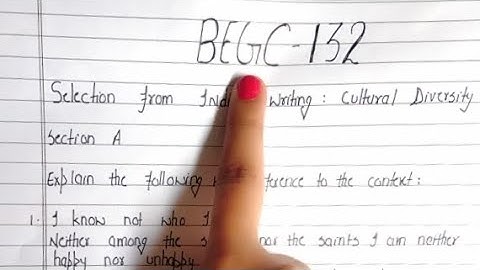 BEGC-132
Selection from Writing: Cultural Diversity
Section A
Explain the following to the context:
1. I know not who I
Neither among the nor the saints I am neither
happy nor unhappy